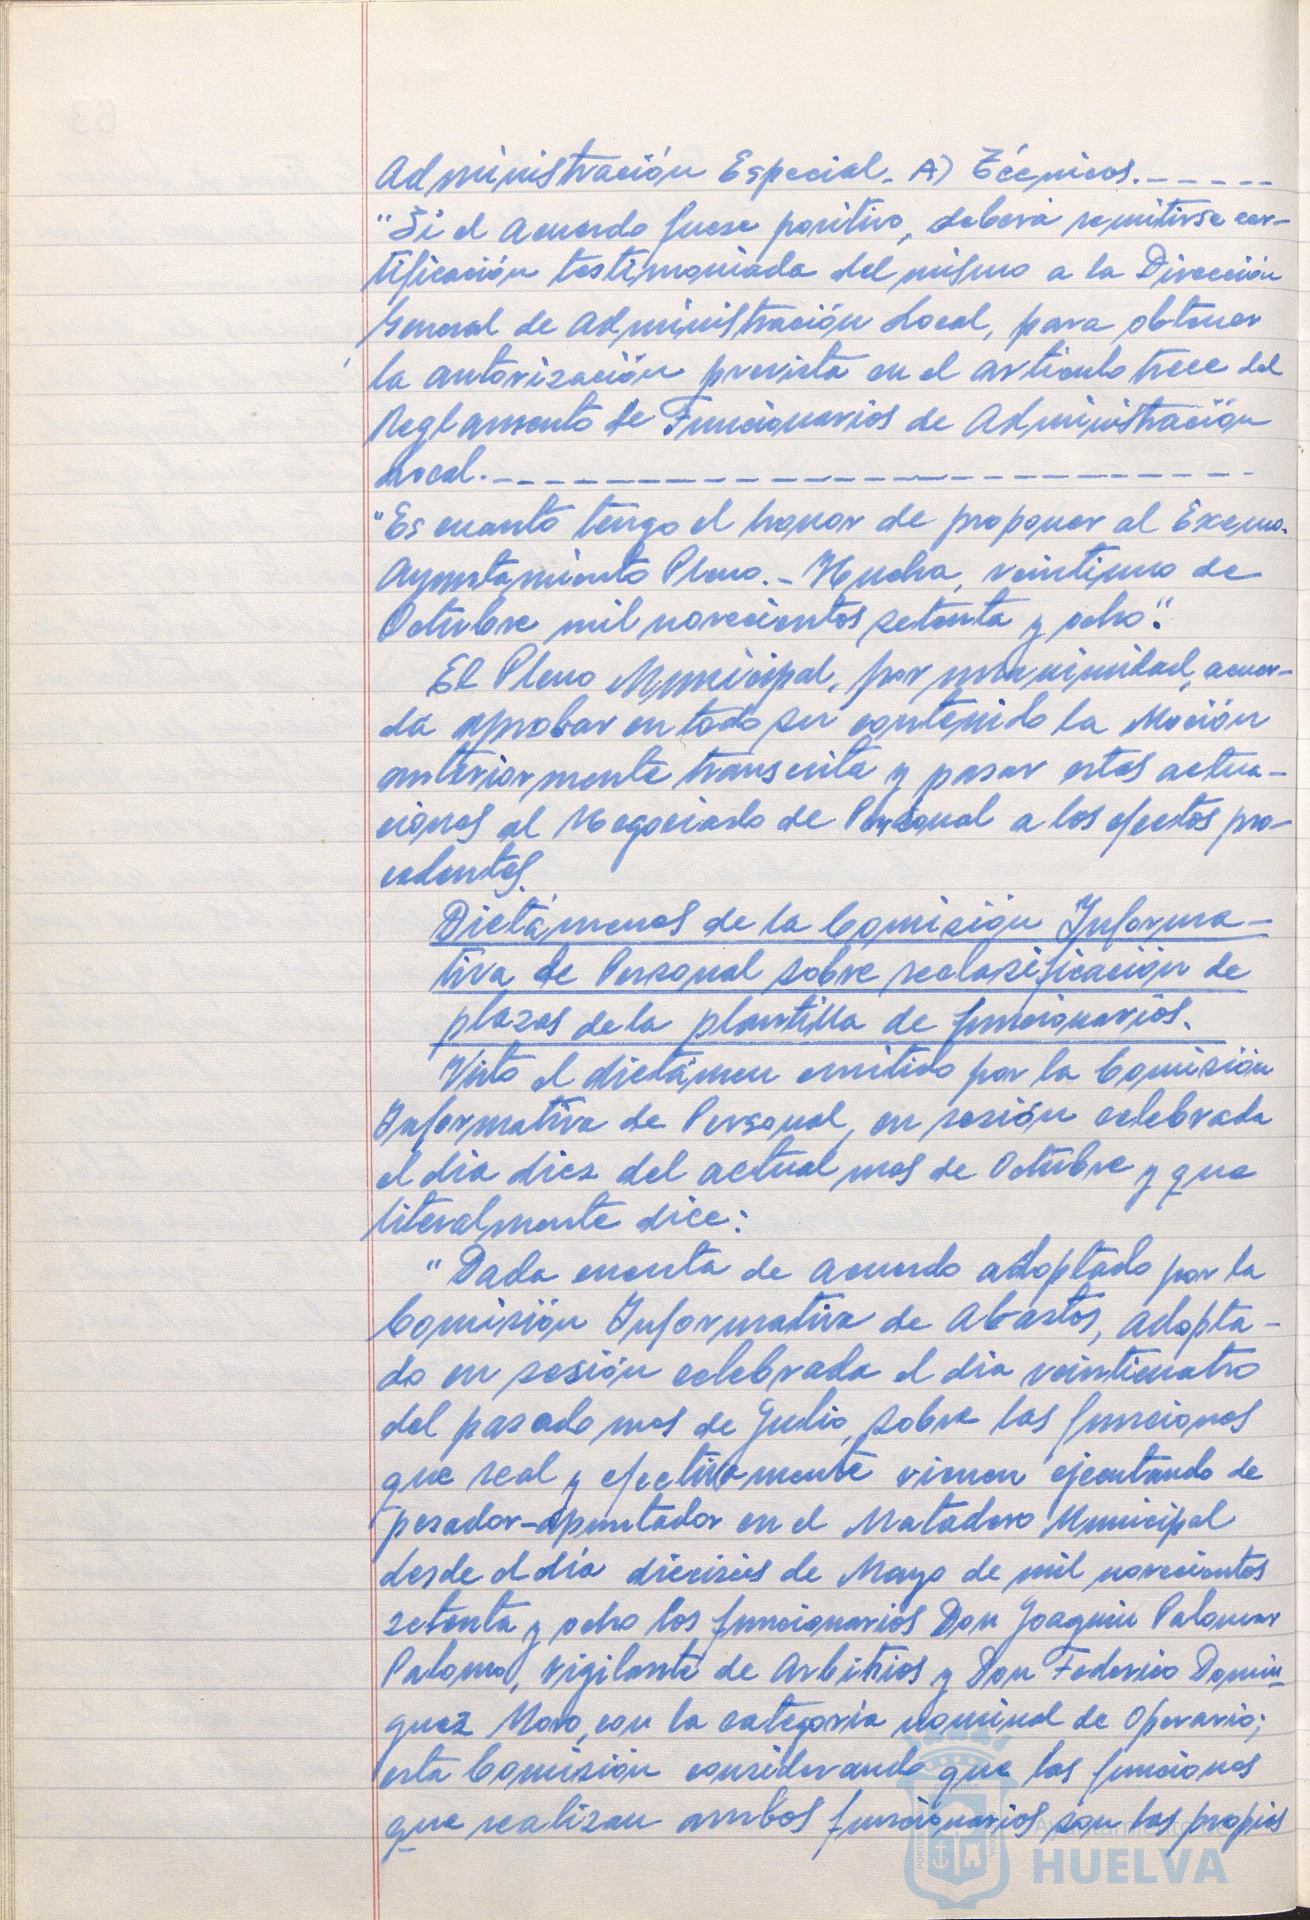 Administración Especial. A) Técnicos.------
"Si el acuerdo fuese positivo, deberá remitirse cer-
tificación testimoniada del mismo a la Dirección
General de Administración Local, para obtener
la autorización prevista en el artículo trece del
Reglamento de Funcionarios de Administración
Local.---------------------
"Es cuanto tengo el honor de proponer al Excmo.
Ayuntamiento Pleno.- Huelva, veintiuno de
Octubre mil novecientos setenta y ocho".
El Pleno Municipal, por unanimidad, acuer-
da aprobar en todo su contenido la Moción
anteriormente transcrita y pasar estas actua-
ciones al Negociado de Personal a los efectos pro-
cedentes.
Dictámenes de la Comisión Informa-
tiva de Personal sobre reclasificación de
plazas de la plantilla de funcionarios.
Visto el dictámen emitido por la Comisión
Informativa de Personal, en sesión celebrada
el dia diez del actual mes de Octubre y que
literalmente dice:
"Dada cuenta de acuerdo adoptado por la
Comisión Informativa de Abastos, adopta-
do en sesión celebrada el dia veinticuatro
del pasado mes de Julio, sobre las funciones
que real y efectivamente vienen ejecutando de
pesador-apuntador en el Matadero Municipal
desde el día dieciseis de Mayo de mil novecientos
setenta y ocho los funcionarios Don Joaquin Palomar
Palomo, Vigilante de Arbitrios y Don Federico Domin-
guez Moro, con la categoría nominal de Operario;
esta Comisión considerando que las funciones
que realizan ambos funcionarios son las propias
Ayuntamiento de
HUELVA